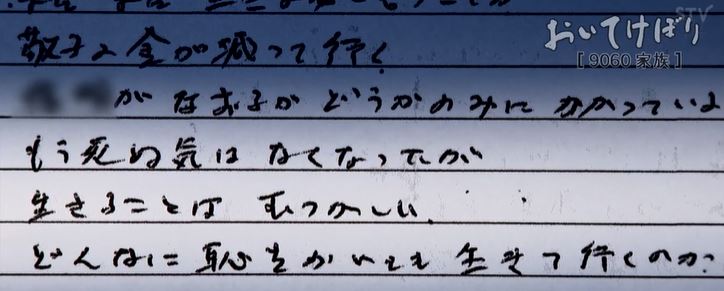 STV
おいてけぼり
[ 9060 家族 ]
敬子の金が減って行く
がなおるかどうかのみにかかっている
もう死ぬ気はなくなったが
生きることはむつかしい。
どんなに恥をかいても生きて行くのか